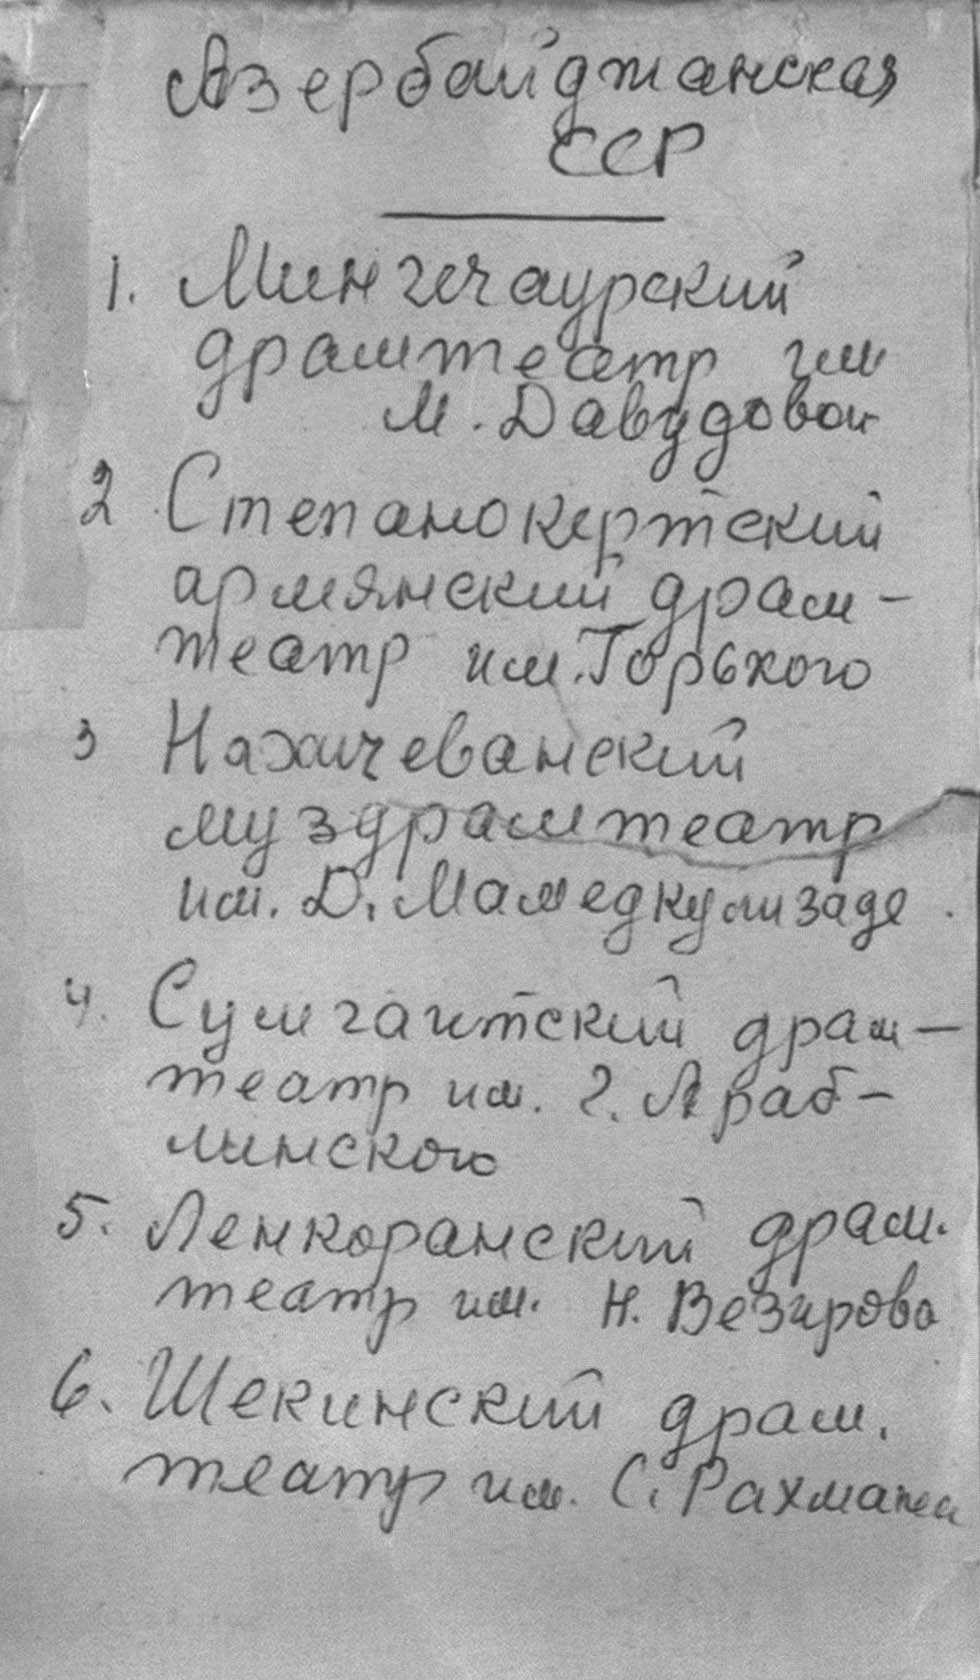 Азербайджанская
ССР
1. Мингечаурский
драмтеатр им
М. Давудовой
2 Степанокертский
армянский драм-
театр им. Горького
3 Нахичеванский
муздрамтеатр
им. Д. Мамедкулизаде
4. Сумгаитский драм-
театр им. Г. Араб-
линского
5. Ленкоранский драм.
театр им. Н. Везирова
6. Шекинский драм.
театр им. С. Рахмана